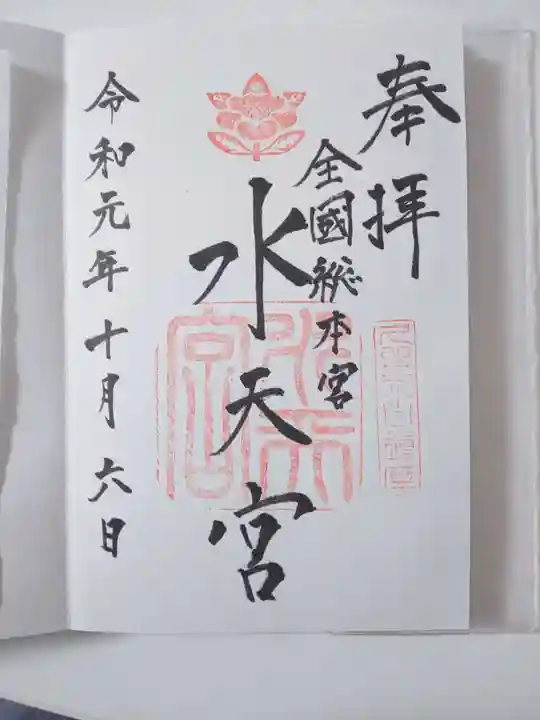 奉拝
全國総本宮
水天宮
令和元年十月六日